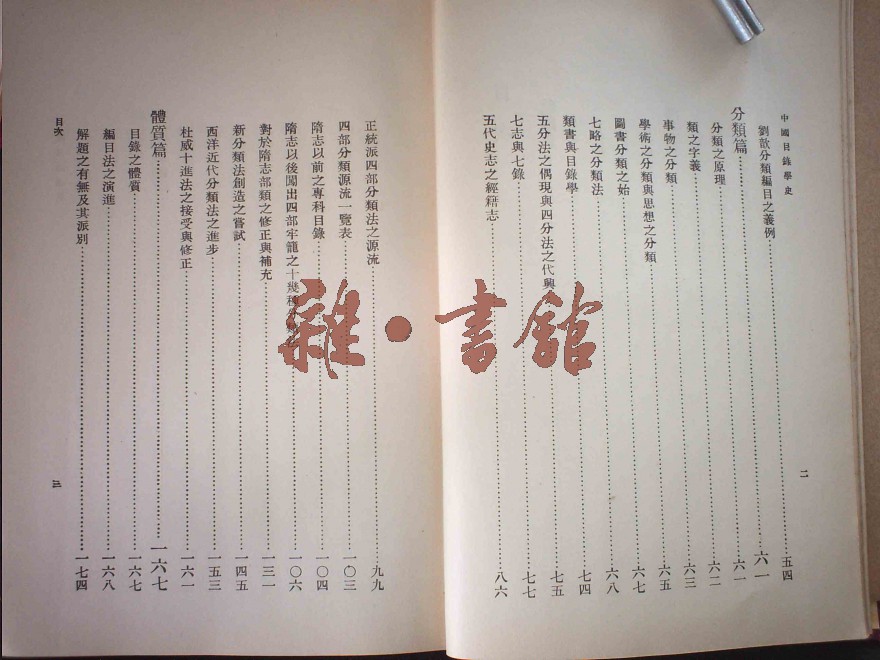 中國目錄學史
劉歆分類編目之義例……五四
分類篇……六一
分類之原理……六一
類之字義……六二
事物之分類……六三
學術之分類與思想之分類……六五
圖書分類之始……六七
七略之分類法……六八
類書與目錄學……七四
五分法之偶現與四分法之代興……七五
七志與七錄……七七
五代史志之經籍志……八六
二
正統派四部分類法之源流……九九
四部分類源流一覽表……一〇三
隋志以前之專科目錄……一〇四
隋志以後闖出四部牢籠之十幾種……一〇六
對於隋志部類之修正與補充……一三一
新分類法創造之嘗試……一四五
西洋近代分類法之進步……一五三
杜威十進法之接受與修正……一六一
體質篇……一六七
目錄之體質……一六七
編目法之演進……一六八
解題之有無及其派別……一七四
目次
三
雜·書館